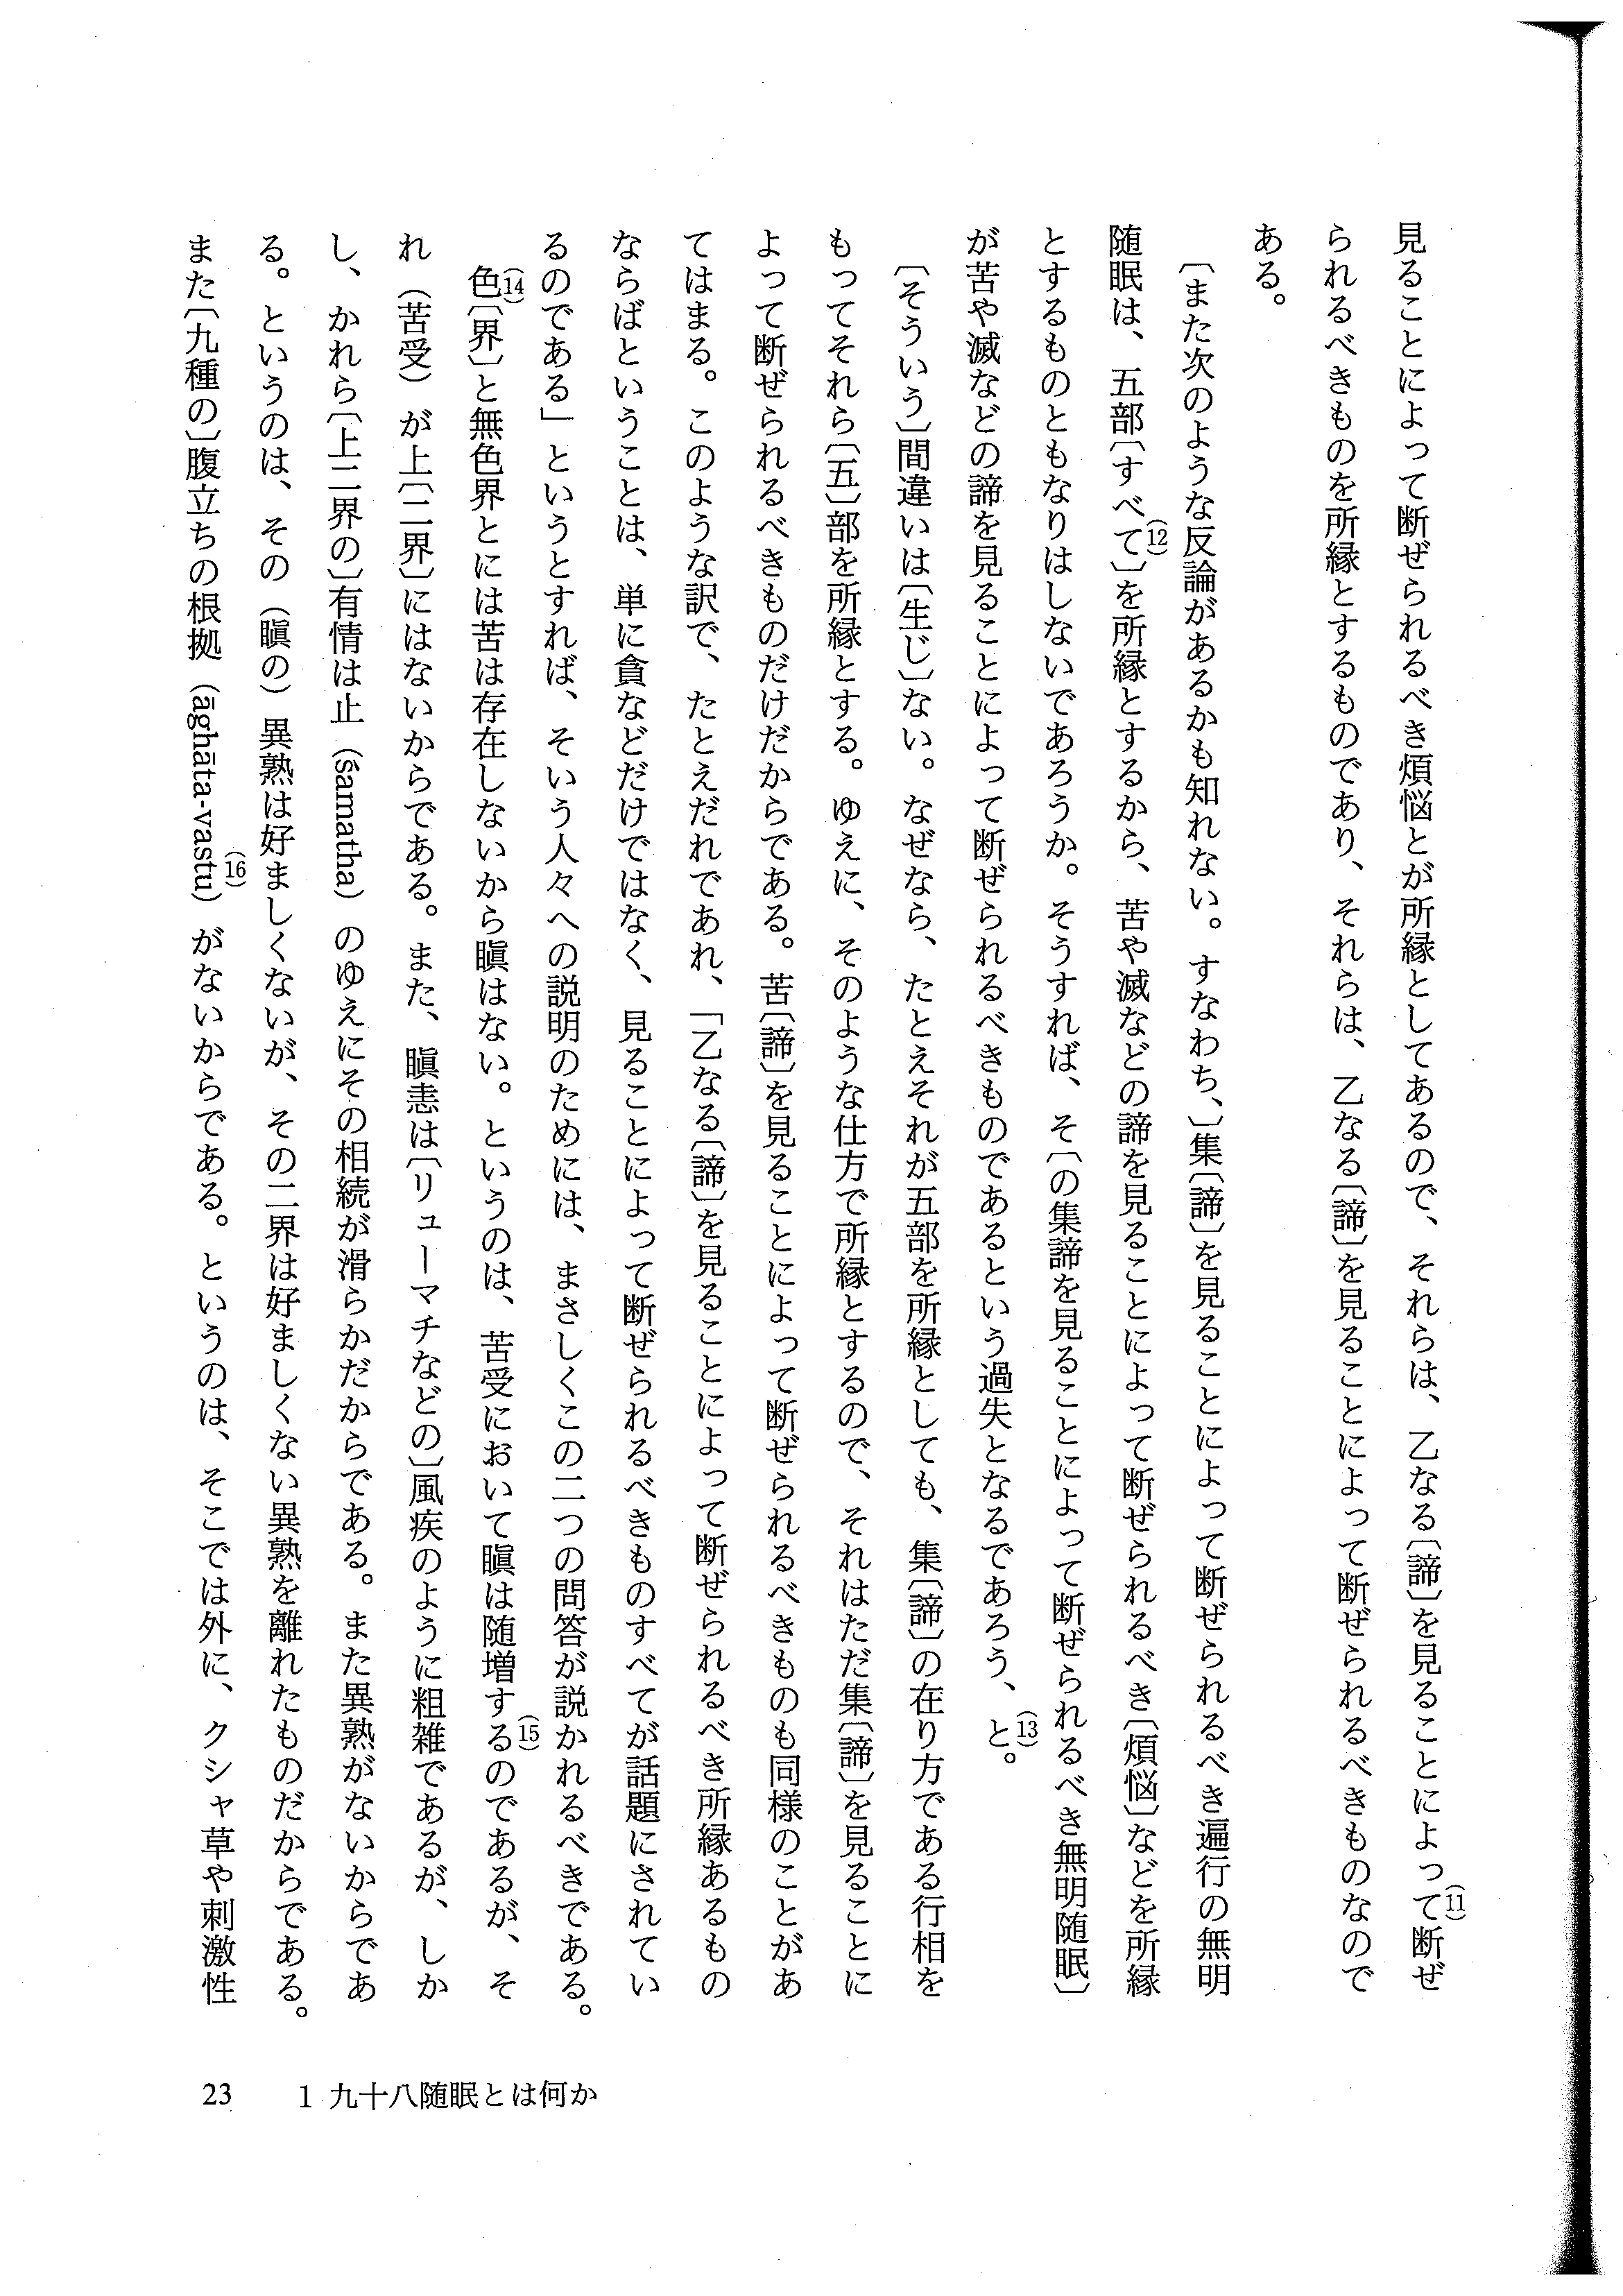 見ることによって断ぜられるべき煩悩とが所縁としてあるので、それらは、乙なる〔諦〕を見ることによって(11)断ぜ
られるべきものを所縁とするものであり、それらは、乙なる〔諦〕を見ることによって断ぜられるべきものなので
ある。
〔また次のような反論があるかも知れない。すなわち、〕集〔諦〕を見ることによって断ぜられるべき遍行の無明
随眠は、五部〔すべて(12)〕を所縁とするから、苦や滅などの諦を見ることによって断ぜられるべき〔煩悩〕などを所縁
とするもののともなりはしないであろうか。そうすれば、そ〔の集諦を見ることによって断ぜられるべき無明随眠〕
が苦や滅などの諦を見ることによって断ぜられるべきものであるという過失となるであろう、と(13)。
〔そういう〕間違いは〔生じ〕ない。なぜなら、たとえそれが五部を所縁としても、集〔諦〕の在り方である行相を
もってそれら〔五〕部を所縁とする。ゆえに、そのような仕方で所縁とするので、それはただ集〔諦〕を見ることに
よって断ぜられるべきものだけだからである。苦〔諦〕を見ることによって断ぜられるべきものも同様のことがあ
てはまる。このような訳で、たとえだれであれ、「乙なる〔諦〕を見ることによって断ぜられるべき所縁あるもの
ならばということは、単に貪などだけではなく、見ることによって断ぜられるべきものすべてが話題にされてい
るのである」というとすれば、そいう人々への説明のためには、まさしくこの二つの問答が説かれるべきである。
色(14)〔界〕と無色界とには苦は存在しないから瞋はない。というのは、苦受において瞋は随増する(15)のであるが、そ
れ（苦受）が上〔二界〕にはないからである。また、瞋恚は〔リューマチなどの〕風疾のように粗雑であるが、しか
し、かれら〔上二界の〕有情は止（śamatha）のゆえにその相続が滑らかだからである。また異熟がないからであ
る。というのは、その（瞋の）異熟は好ましくないが、その二界は好ましくない異熟を離れたものだからである。
また〔九種の〕腹立ちの根拠（āghāta-vastu(16)）がないからである。というのは、そこでは外に、クシャ草や刺激性
23 1 九十八随眠とは何か